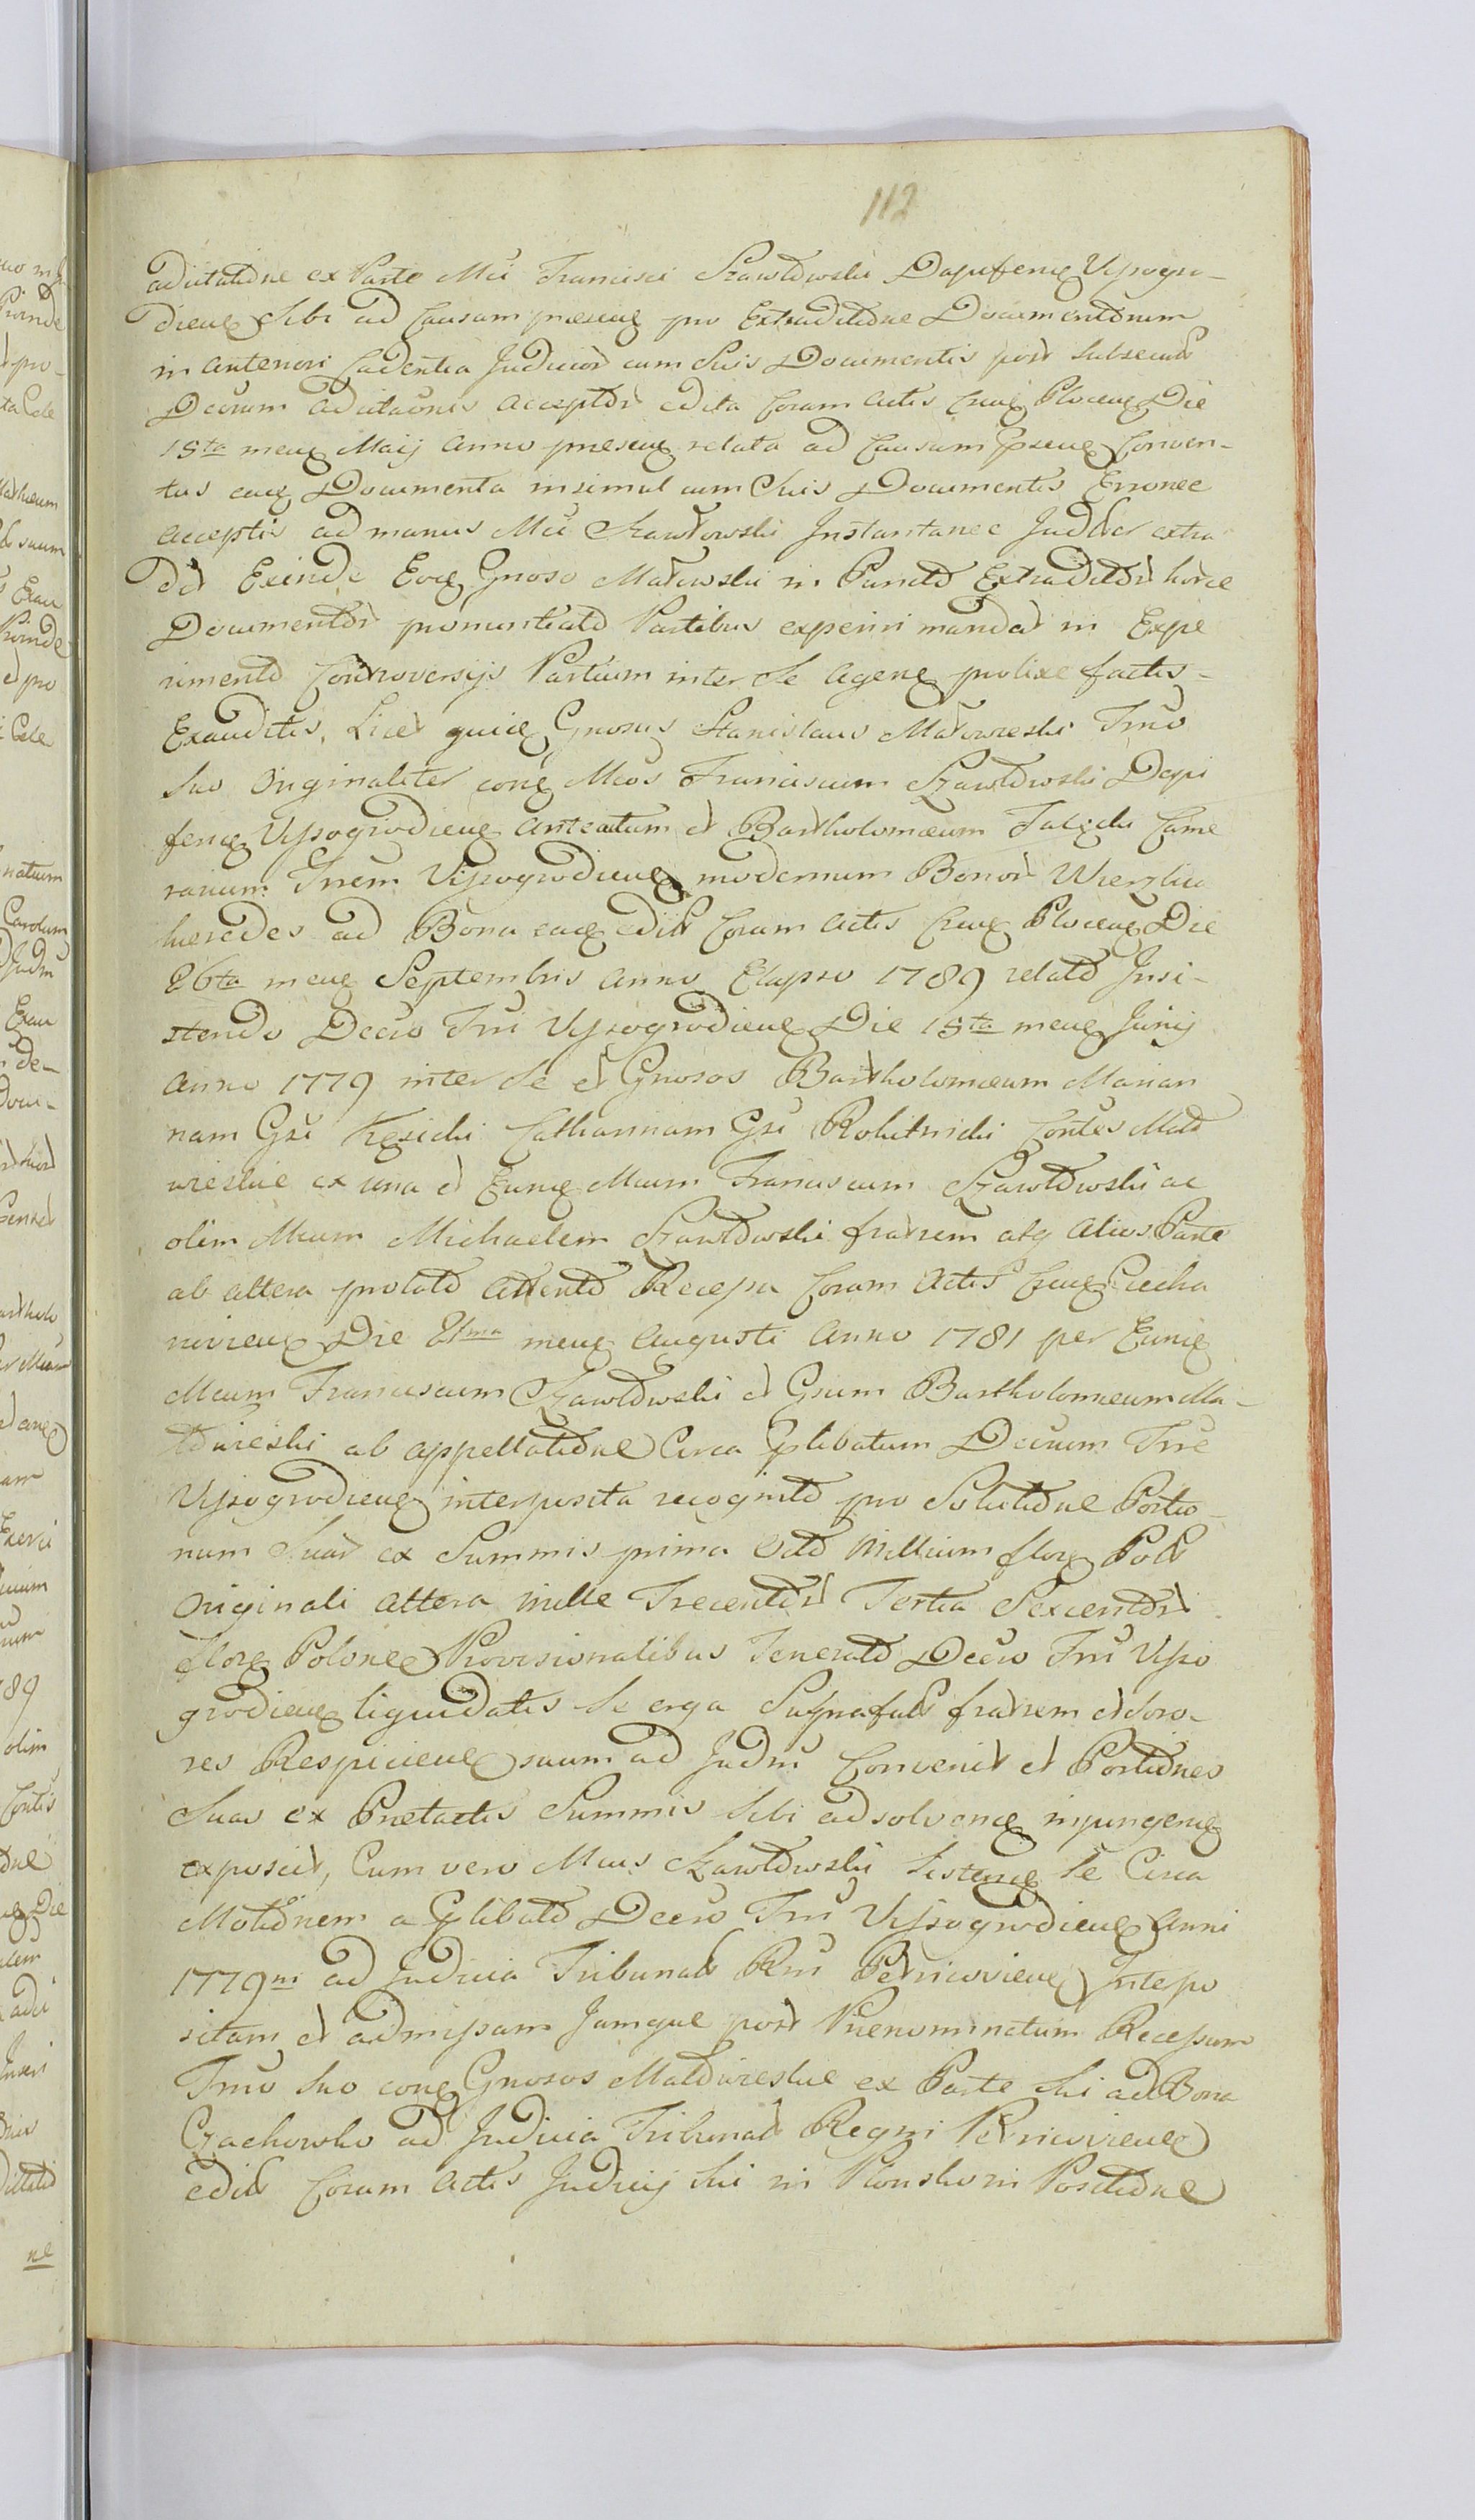 112
adcitatione ex Parte Mci Francisci Szawłowski Dapiferi Vyszogro-
dien Sibi ad Causam præsen pro Extraditione Documentorum
in anteriori Cadentia Judicior cum Suis Documentis post Subsecut
Decrum adcitaonis acceptor edita Coram actis Cren Plocen Die
15ta men Maij anno præsen relata ad Causam præsen Conven-
tus ea Documenta insimul cum Suis Documentis Erronee
acceptis ad manus Mci Szawłowski Instantanee Juddlr extra
dit Exinde Eoq Gnoso Małowski in Puncto Extraditor horce
Documentor pronuntiato Partibus experiri mandat in Expe
rimento Controversijs Partium inter Se agen prolixe factis-
Exauditis, Licet quiq Gnosus Stanislaus Małowieski Trno
Suo Originaliter con Mcos Franciscum Szawłowski Dapi
fer Vyszogrodien anteatum et Bartholomæum Jalęcki Came
rarium Trrem Viszogrodien modernum Bonor Wierzbica
hæredes ad Bona ea edit Coram actis Cren Plocen Die
26ta men Septembris anno Elapso 1789 relato Insi-
stendo Decro Trri Vyszogrodien Die 15ta men Junij
anno 1779 inter Se et Gnosos Bartholomæum Marian
nam Gsi Kęsicki Catharinam Gsi Rokitnicki Contes Mało
wieskie ex una et Eun Mcum Franciscum Szawłowski ac
olim Mcum Michaelem Szawłowski fratrem atq alios Parte
ab altera prolato attento Recessu Coram actis Cren Ciecha
novien Die 21ma men Augusti anno 1781 per Eun
Mcum Franciscum Szawłowski et Gsum Bartholomæum Ma-
łowieski ab appellatione Circa Prælibatum Decrum Trre
Vyszogrodien interposita recognito pro Solutione Portio-
num Suar ex Summis prima Octo Millium flor Pols
Originali altera Mille Trecentor Tertia Sexcentor
flor Polone Provisionalibus Tenerato Decro Trri Vyszo
grodien liquidatis Se erga Suprafats fratrem et Soro-
res Respicien suum ad Judm Convenit et Portiones
Suas ex Prætactis Summis Sibi adsolven injungen
exposcit, Cum vero Mcus Szawłowski Sisten Se Circa
Motionem a Prælibato Decro Trri Vyszogrodien Anni
1779ni ad Judicia Tribunals Rni Petricovien Intepo
sitam et admissam Jamque post Prænominatum Recessum
Trno Suo con Gnosos Małowieskie ex Parte Sui ad Bona
Czachowko ad Judicia Tribunals Regni Petricovien
edits Coram actis Judicij Sui in Płonsko in Positione